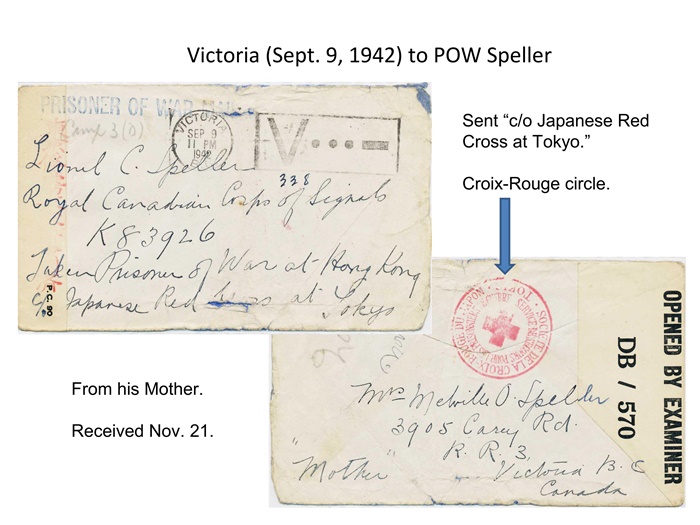 Victoria (Sept. 9, 1942) to POW Speller
PRISONER OF WAR MAIL
Camp 3(D)
VICTORIA
SEP 9
11 PM
1942
V...-
Lionel C. Speller
338
Royal Canadian Corps of Signals
K83926
Taken Prisoner of War at Hong Kong
c/o Japanese Red Cross at Tokyo
P.C. 90
Sent “c/o Japanese Red
Cross at Tokyo.”
Croix-Rouge circle.
SOCIETE DE LA CROIX-ROUGE DU JAPON TOKYO
OPENED BY EXAMINER
DB / 570
From his Mother.
Received Nov. 21.
Mrs Melville O. Speller
3905 Carey Rd.
R. R. 3,
"Mother"
Victoria B. C
Canada